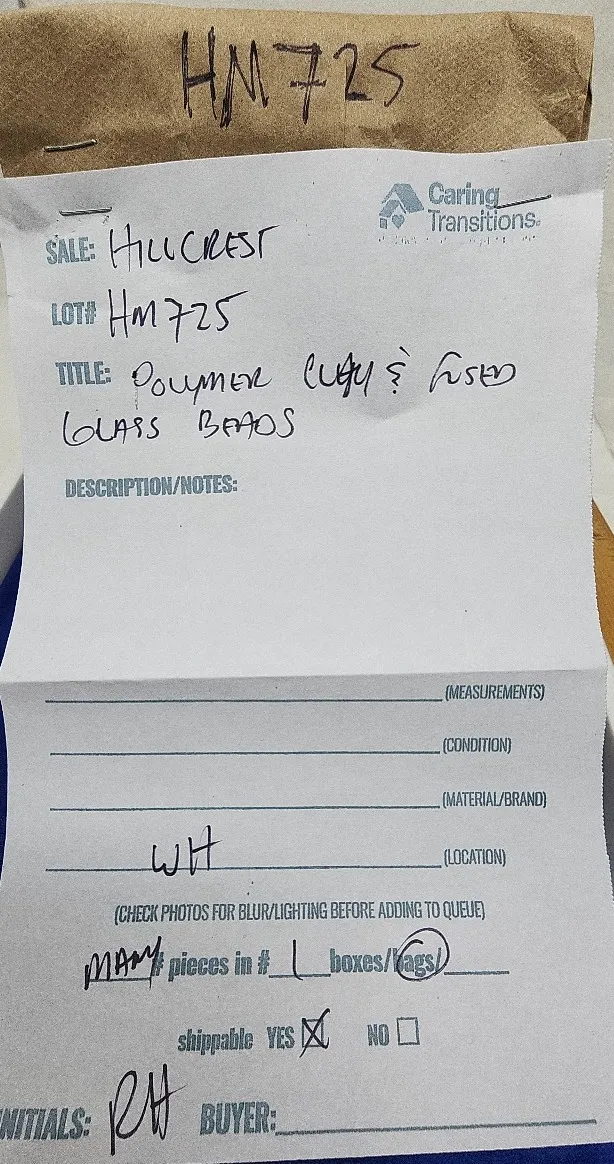 HM725
Caring
Transitions
SALE: HILLCREST
LOT# HM725
TITLE: POLYMER CLAY & FUSED
GLASS BEADS
DESCRIPTION/NOTES:
(MEASUREMENTS)
(CONDITION)
(MATERIAL/BRAND)
WH (LOCATION)
(CHECK PHOTOS FOR BLUR/LIGHTING BEFORE ADDING TO QUEUE)
MANY # pieces in # 1 boxes/bags/
shippable YES NO
NITIALS: RH BUYER: